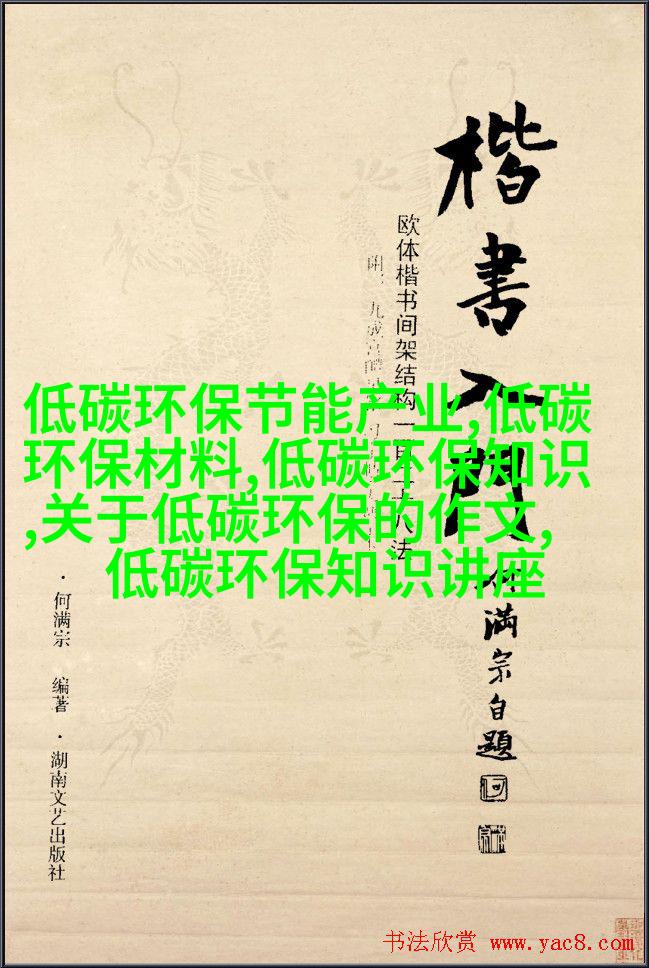 楷書入門
欧体楷书间架结构一百二十八法
何满宗自題
低碳环保节能产业,低碳
环保材料,低碳环保知识
,关于低碳环保的作文,
低碳环保知识讲座
·何满宗 编著·湖南文艺出版社
书法欣赏 www.yac8.com